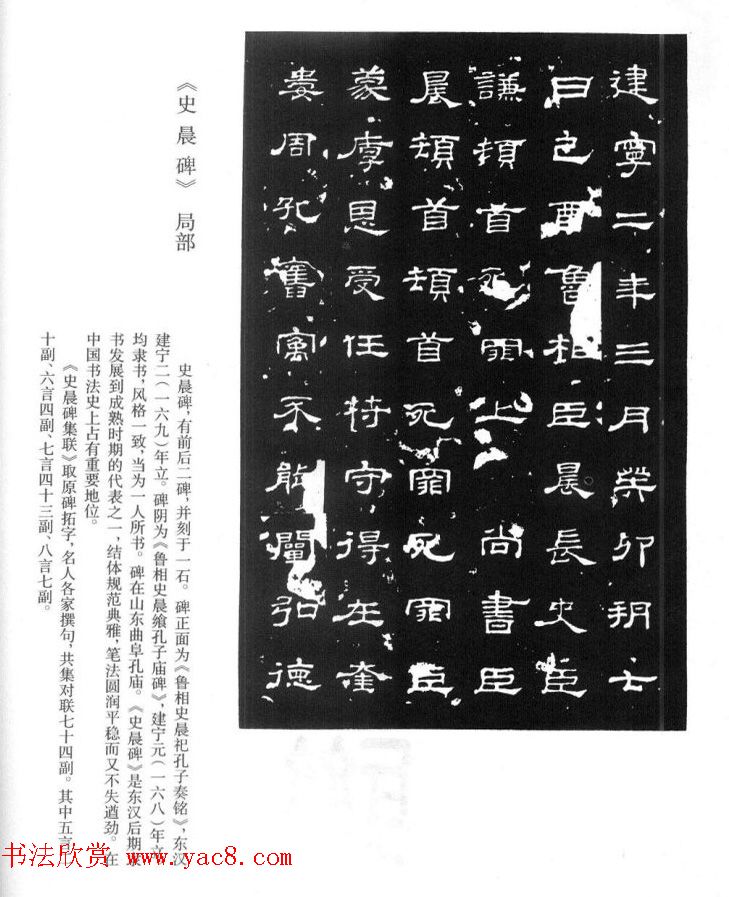 建寧二年三月癸卯朔七
日己酉魯相臣晨長史臣
謙頓首死罪上 尚書臣
晨頓首頓首死罪死罪臣
蒙厚恩受任符守得在奎
婁周孔舊寓不能闡弘德
《史晨碑》 局部
史晨碑,有前后二碑,并刻于一石。碑正面为《鲁相史晨祀孔子奏铭》,东汉
建宁二(一六九)年立。碑阴为《鲁相史晨飨孔子庙碑》,建宁元(一六八)年立
均隶书,风格一致,当为一人所书。碑在山东曲阜孔庙。《史晨碑》是东汉后期隶
书发展到成熟时期的代表之一,结体规范典雅,笔法圆润平稳而又不失遒劲。在
中国书法史上占有重要地位。
《史晨碑集联》取原碑拓字,名人各家撰句,共集对联七十四副。其中五言
十副、六言四副、七言四十三副、八言七副。
书法欣赏 www.yac8.com